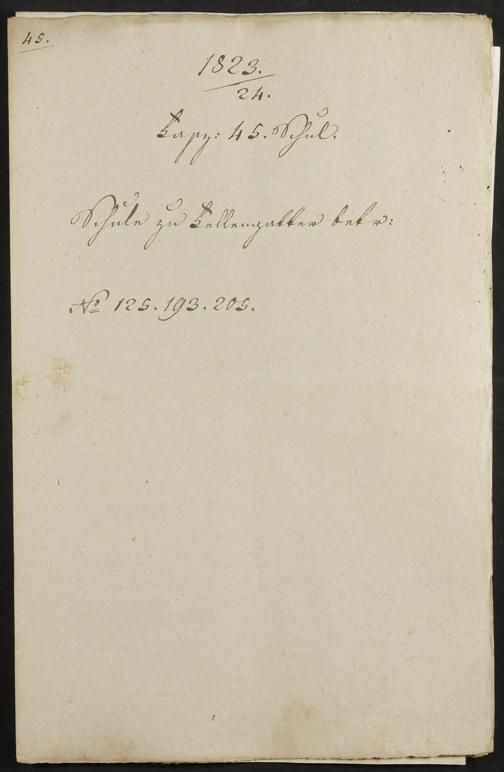 45.
1823.
24.
Kapz: 45. Schul.
Schule zu Kellengatter betr:
No 125. 193. 205.